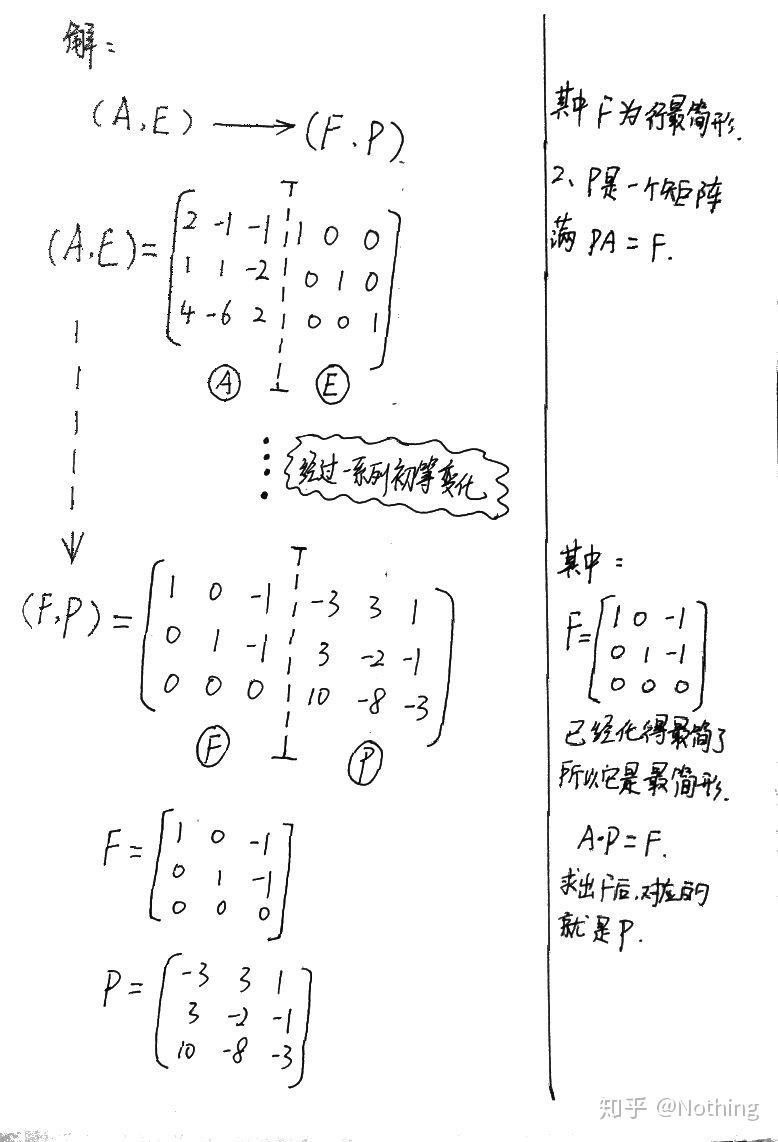 解：
(A,E) → (F,P)
(A,E)=
2 -1 -1 1 0 0
1 1 -2 0 1 0
4 -6 2 0 0 1
A E
经过一系列初等变化
(F,P)=
1 0 -1 -3 3 1
0 1 -1 3 -2 -1
0 0 0 10 -8 -3
F P
F=
1 0 -1
0 1 -1
0 0 0
P=
-3 3 1
3 -2 -1
10 -8 -3
其中F为行最简形.
2、P是一个矩阵
满PA=F.
其中：
F=
1 0 -1
0 1 -1
0 0 0
已经化得最简了
所以它是最简形.
A·P=F.
求出F后,对应的
就是P.
知乎 @Nothing